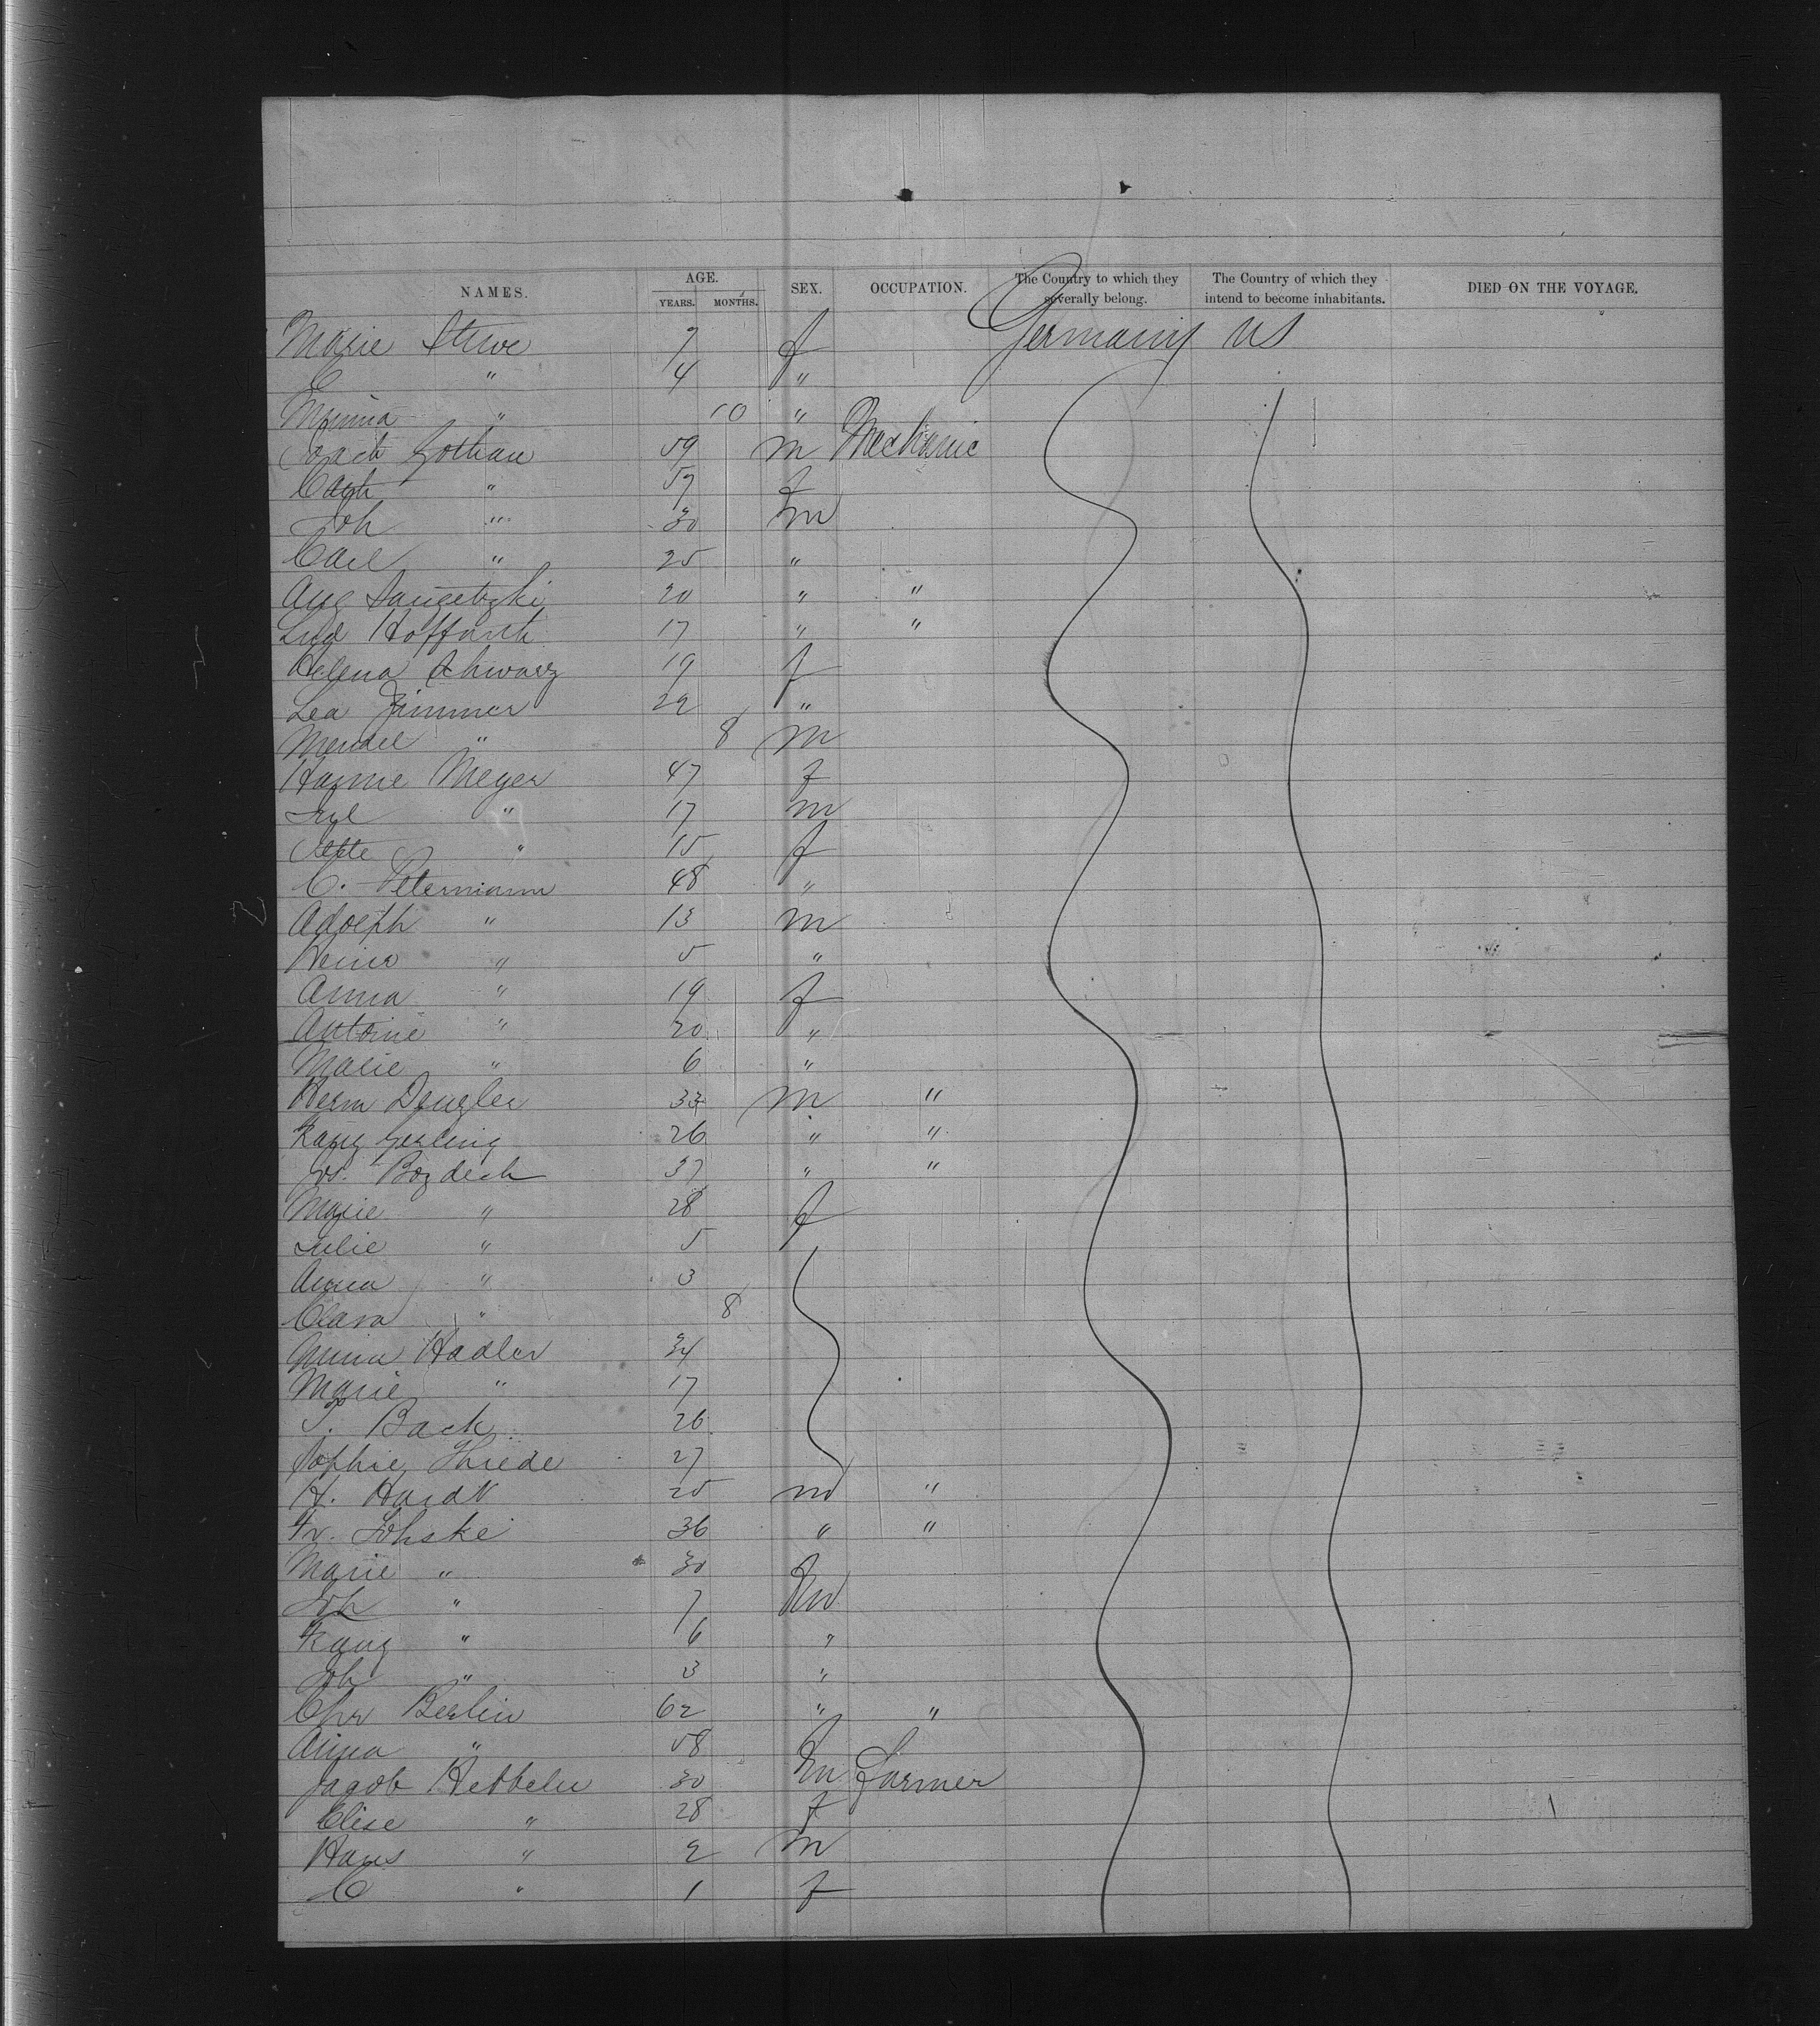 NAMES. AGE. YEARS. MONTHS. SEX. OCCUPATION. The Country to which they severally belong. The Country of which they intend to become inhabitants. DIED ON THE VOYAGE.
Marie Stuve 7 f Germany US
C " 4 "
Minna " 10 "
Joach Gothan 59 m Mechanic
Cath " 57 f
Joh " 30 m
Carl " 25 "
Aug 20 " "
Lud Hoffarth 17 " "
Helena Schwarz 19 f
Lea Zimmer 22 "
Mendel " 8 m
Hanne Meyer 47 f
" 17 m
" 15 f
C. Petermann 48 "
Adolph " 13 m
" 5 "
Anna " 19 f
Antoine " 20 "
Marie " 6 "
Herm Dengler 33 m "
Franz Gerling 26 " "
Jos. Bozdech 37 " "
Marie " 28 f
Julie " 5
Anna " 3
Clara " 8
Anna Hadler 34
Marie " 17
Back 26
Sophie Thiede 27
H. Hardt 25 m "
Fr. Lohske 36 " "
Marie " 30 f
Joh " 7 m
Franz " 6 "
Joh " 3 "
Chr Berlin 62 " "
Anna " 58 f
Jacob Hebbeln 30 m Farmer
Elise " 28 f
Hans " 2 m
C " 1 f